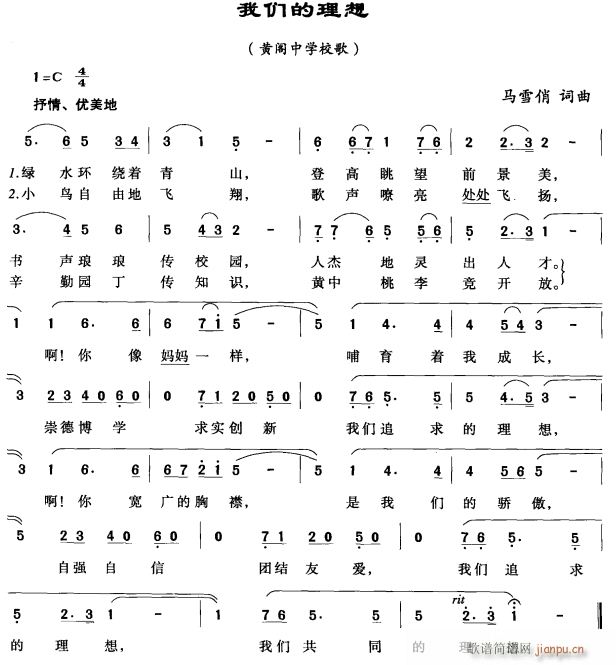 我们的理想
（黄阁中学校歌）
1=C 4/4
抒情、优美地
马雪俏 词曲
5. 6 5 3 4 | 3 1 5 - | 6 6 7 1 7 6 | 2 2. 3 2 - |
1.绿 水环 绕着 青 山， 登 高眺 望 前 景 美，
2.小 鸟自 由地 飞 翔， 歌 声嘹 亮 处处飞 扬，
3. 4 5 6 | 5 4 3 2 - | 7 7 6 5 5 6 | 5 2. 3 1 - |
书 声琅 琅 传校园， 人杰 地灵 出 人 才。
辛 勤园 丁 传知识， 黄中 桃李 竞 开 放。
1 1 6. 6 | 6 7 i 5 - | 5 1 4. 4 | 4 5 4 3 - |
啊！你 像 妈妈一 样， 哺 育 着 我 成 长，
3 2 3 4 0 6 0 | 0 7 1 2 0 5 0 | 0 7 6 5. 5 | 5 4. 5 3 - |
崇德博 学 求实创 新 我们追 求 的理 想，
3 1 6. 6 | 6 7 2 i 5 - | 5 1 4. 4 | 4 5 6 5 - |
啊！你 宽 广的胸 襟， 是 我 们 的 骄 傲，
5 2 3 4 0 6 0 | 0 7 1 2 0 5 0 | 0 7 6 5. 5 |
自强 自 信 团结 友 爱， 我们 追 求
5 2. 3 1 - | 1 7 6 5. 5 | 5 2. 3 i - ‖
rit
的 理 想， 我们 共 同 的 理
歌谱简谱网 jianpu.cn